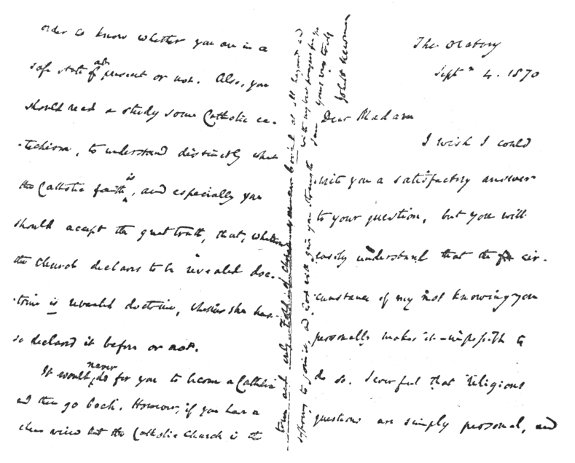 The Oratory
Septr 4. 1870
Dear Madam
I wish I could
write you a satisfactory answer
to your question, but you will
easily understand that the cir-
cumstance of my not knowing you
personally makes it impossible to
do so. I ever feel that religious
questions are simply personal, and
order to know whether you are in a
safe state at present or not. Also, you
should read & study some Catholic ca-
-techism, to understand distinctly what
the Catholic faith is, and especially you
should accept the great truth, that, whatever
the Church declares to be revealed doc-
-trine is revealed doctrine, whether she has
so declared it before or not.
It would never do for you to become a Catholic
and then go back. However, if you have a
clear view that the Catholic Church is the
true and only Fold of Christ, you are bound at all hazards
to join it, and God will give you strength
with my best prayers for you
I am yours very truly
John H Newman